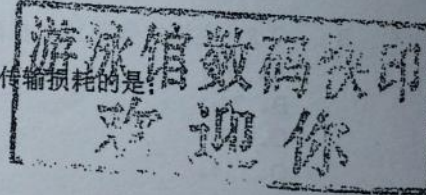 游泳馆数码快印
传输损耗的是:
欢迎你